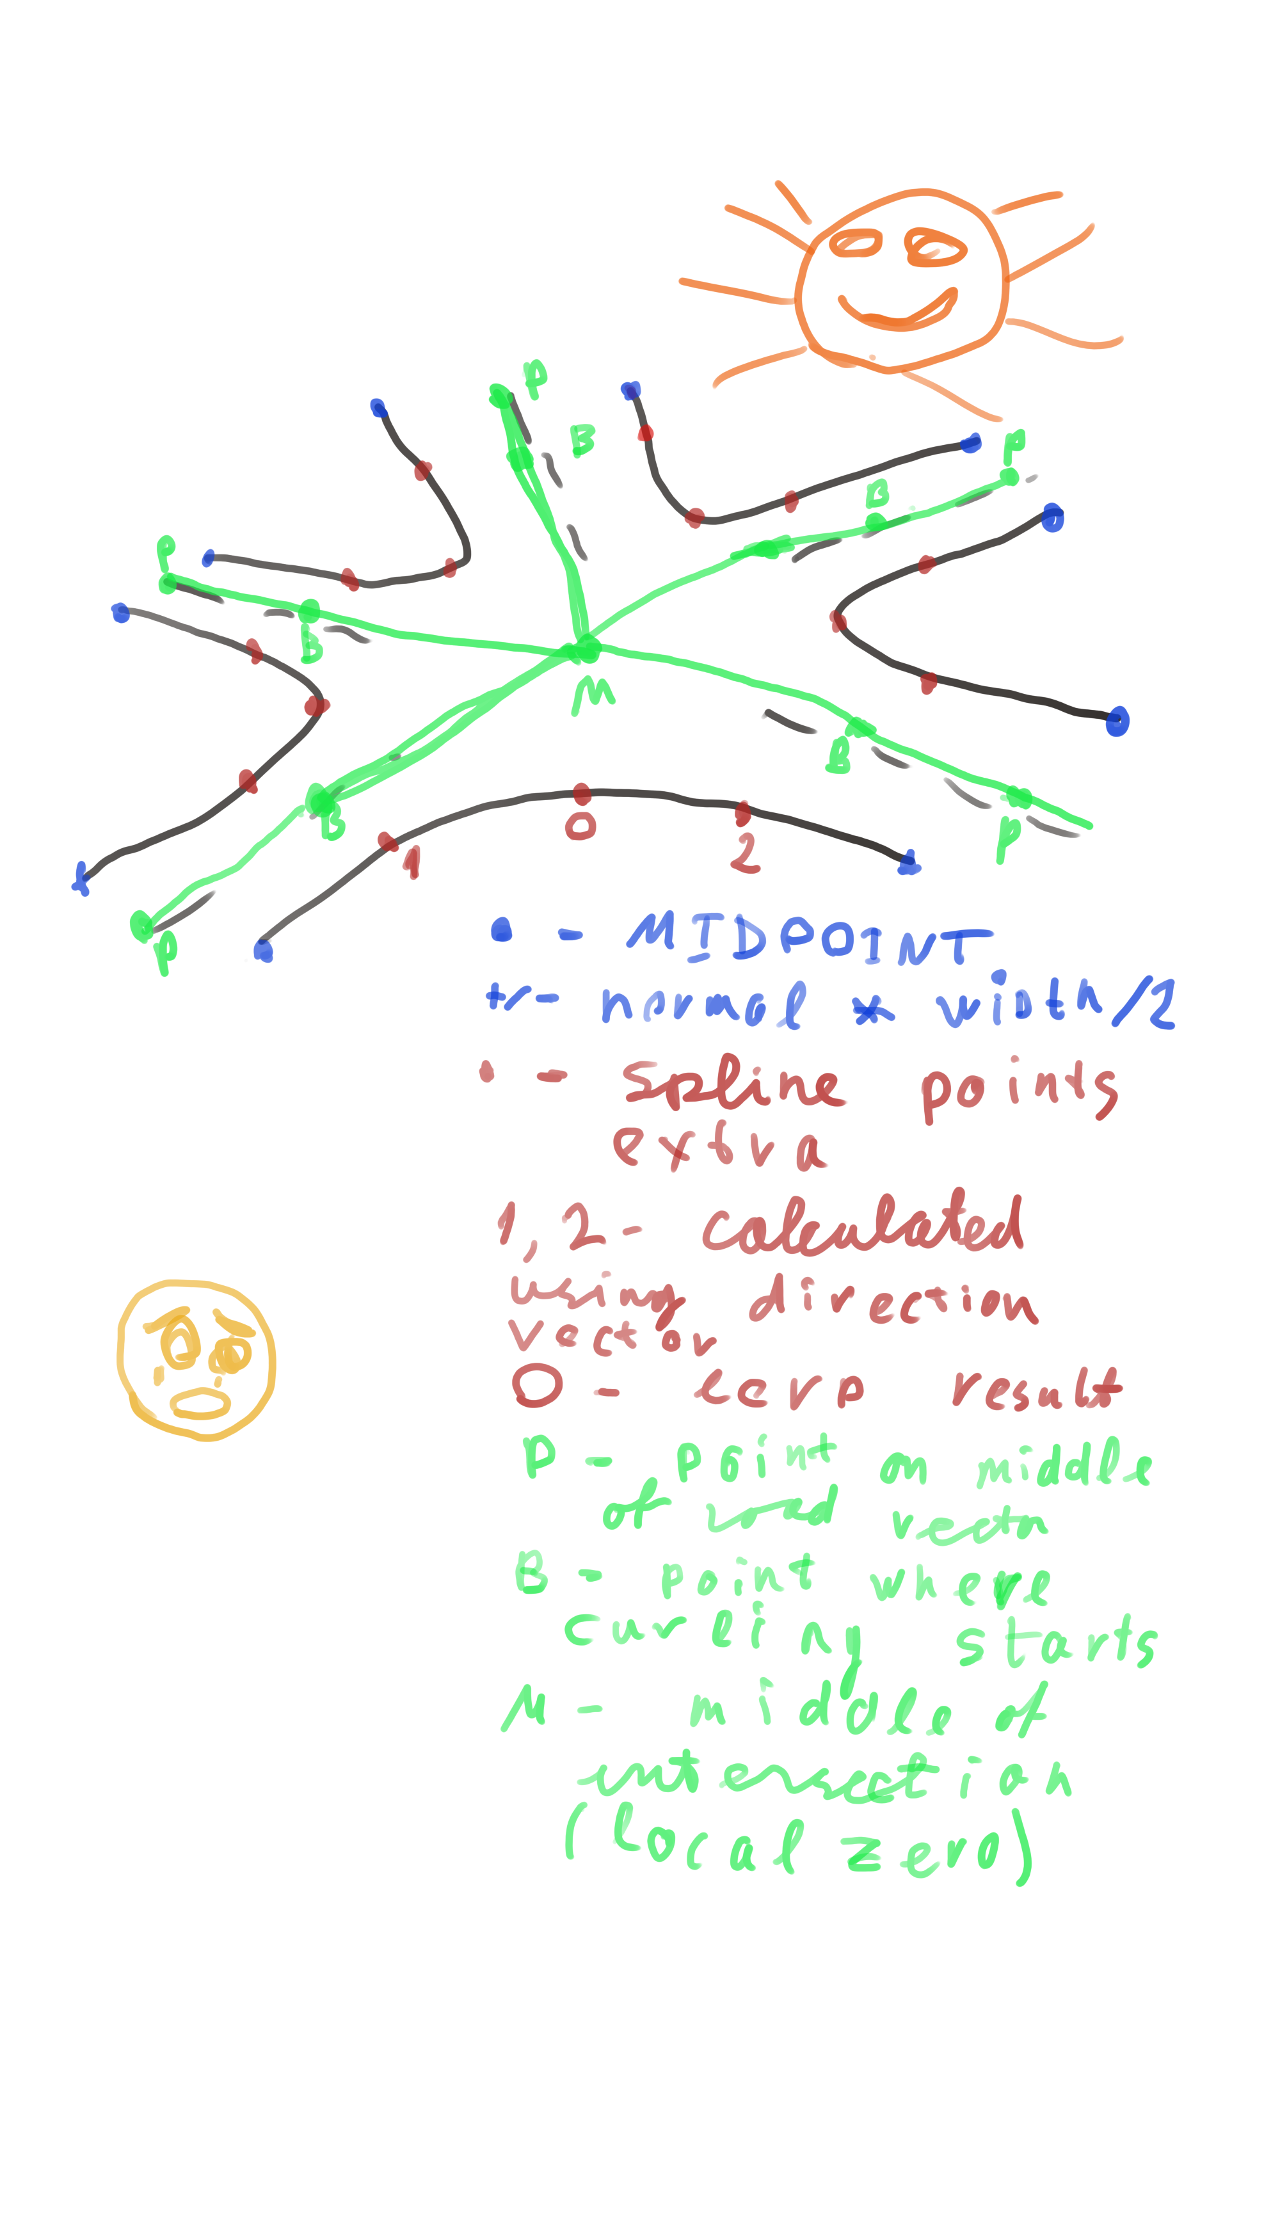 P
B
P
B
P
B
M
B
P
B
P
1
0
2
- MIDPOINT
+/- normal * width/2
- spline points
extra
1, 2 - calculated
using direction
vector
0 - lerp result
P - point on middle
of road vector
B - point where
curling starts
M - middle of
intersection
(local zero)